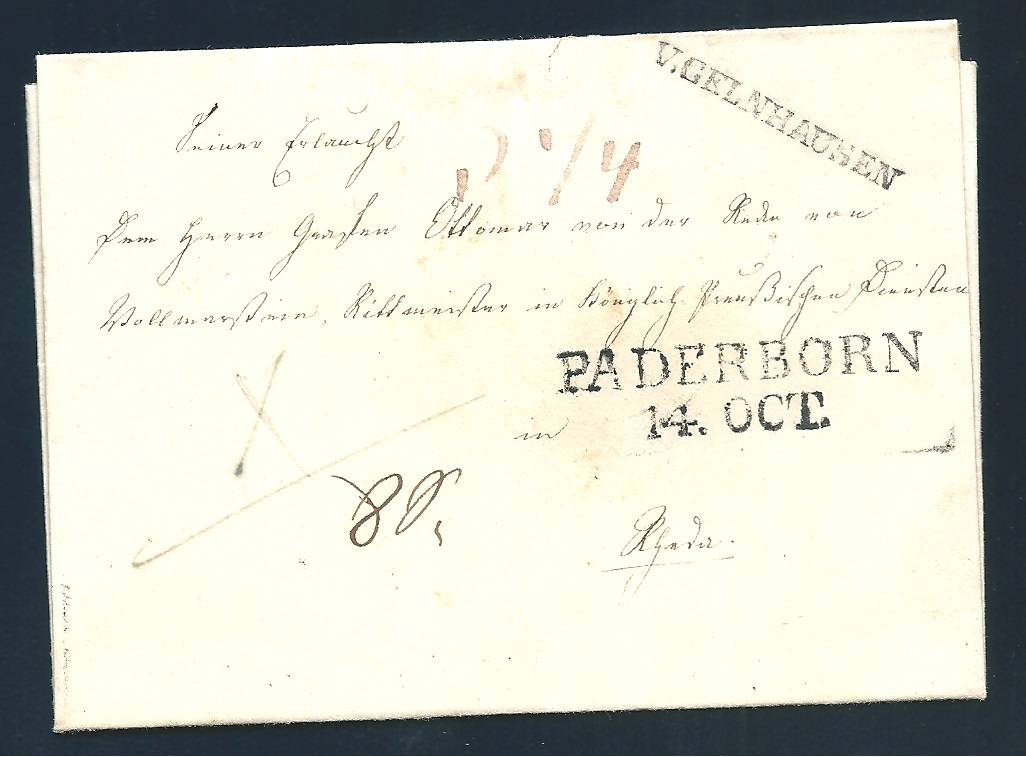 V. GELNHAUSEN
Seiner Erlaucht
1/4
Dem Herrn Grafen Ottomar von der Recke von
Vollmarstein, Rittmeister in Königlich Preußischen Diensten
PADERBORN
14. OCT.
in
8
Rheda.